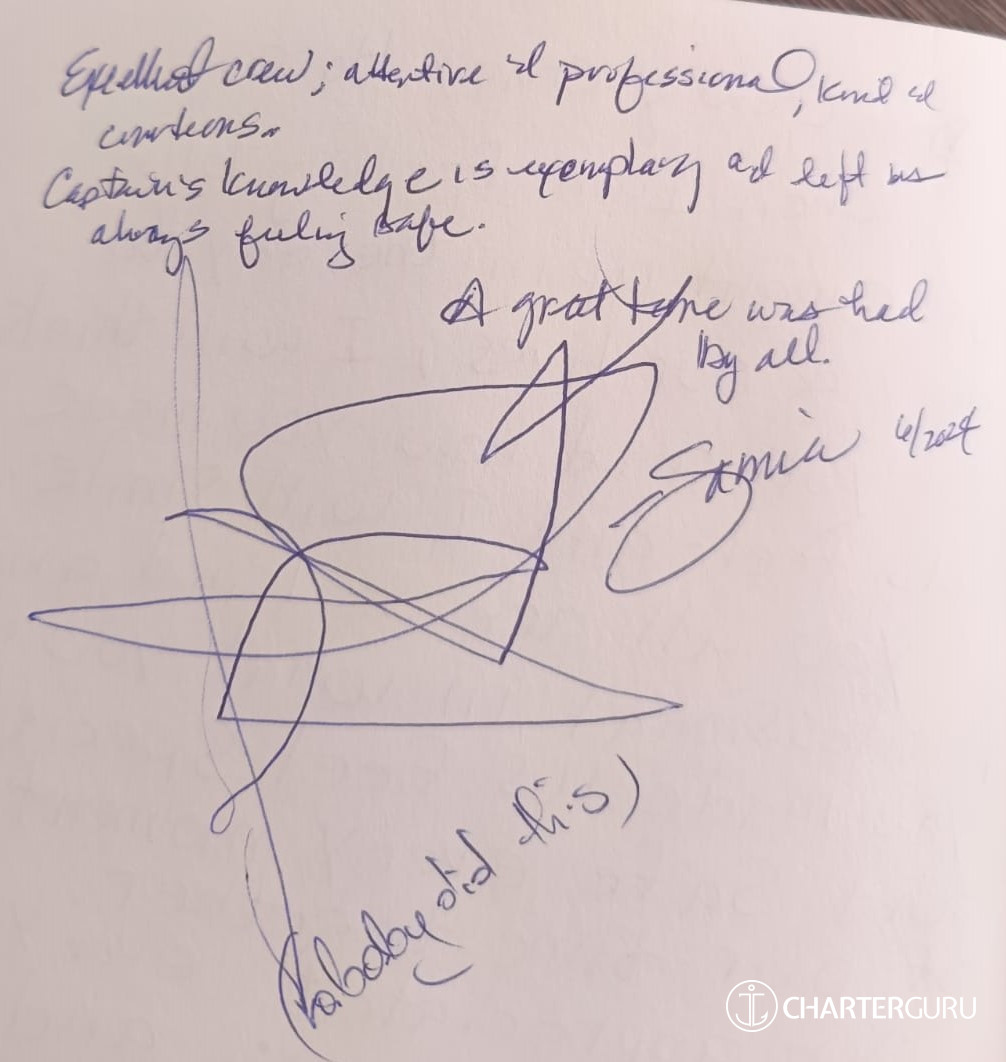 Excellent crew; attentive & professional, kind &
courteous.
Captain's knowledge is exemplary and left us
always feeling safe.
A great time was had
by all.
Samia 6/2024
(a baby did this)
CHARTERGURU